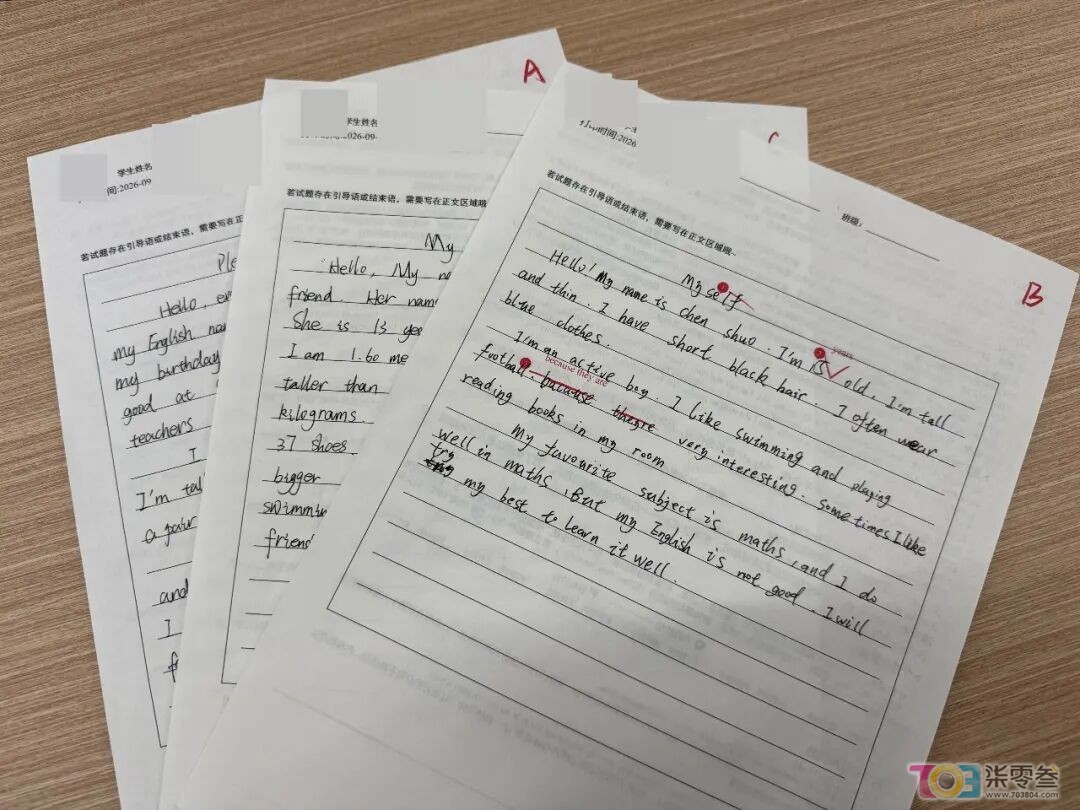 学生姓名
间:2026-09
若试题存在引导语或结束语，需要写在正文区
Hello,
my English
my birthday
good at
teachers
I
I'm
a pair
and
I
A
学生姓名
2026-09-
若试题存在引导语或结束语，需要写在正文区域哦
My
Hello, My
friend. Her name
She is 13
I am 1.60 me
taller than
kilograms
37 shoes
bigger
friend
打印时间:2026
班级:
若试题存在引导语或结束语，需要写在正文区域哦~
B
Myself
Hello! My name is chen shuo. I'm 15 old, I'm tall
years
and thin. I have short black hair. I often wear
blue clothes.
I'm an active boy. I like swimming and playing
because they are
football. bacause very interesting. sometimes I like
reading books in my room
My favourite subject is maths, and I do
well in maths. But my English is not good. I will
try
my best to learn it well.
703柒零叁
www.703804.com